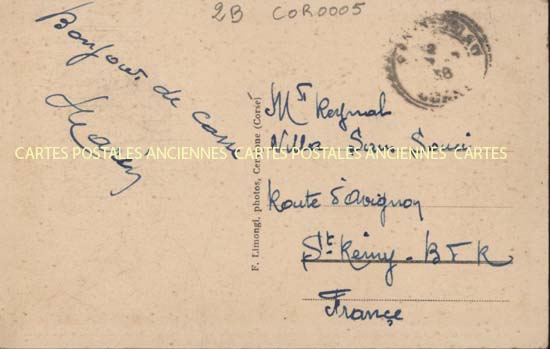 2B COR0005
Bonjour de
F. Limongi, photos, Cervione (Corse)
38
Mr Reynal
Villa Sans Souci
CARTES POSTALES ANCIENNES CARTES POSTALES ANCIENNES CARTES
Route d'Avignon
St Rémy. B d R
France